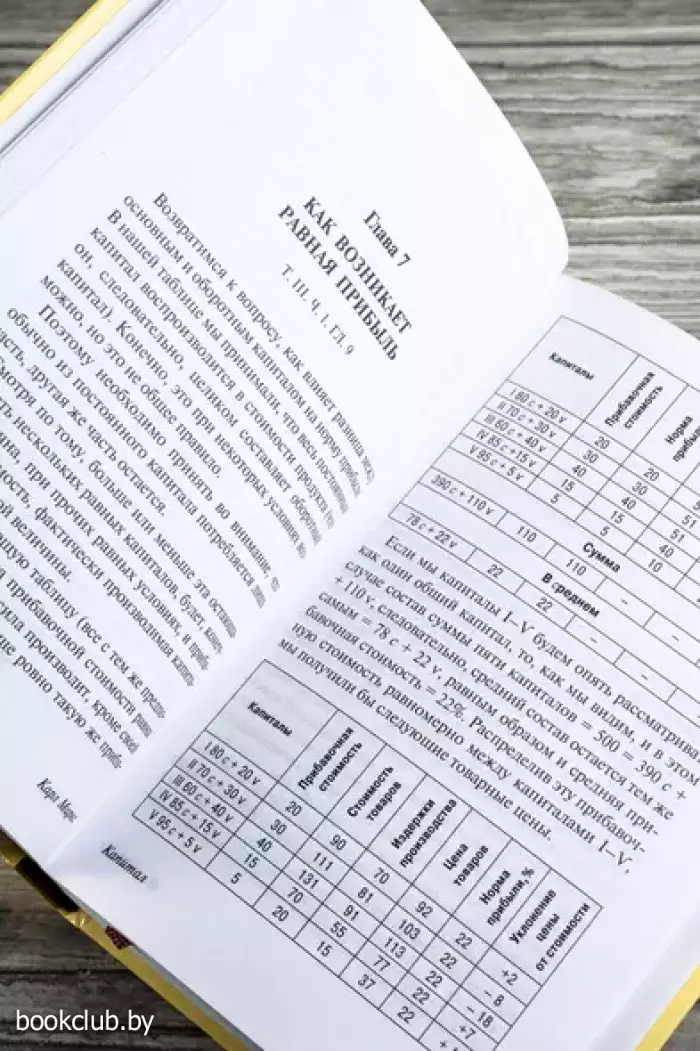 Глава 7
КАК ВОЗНИКАЕТ
РАВНАЯ ПРИБЫЛЬ
Т. III. Ч. 1. ГЛ. 9
Возвратимся к вопросу, как влияет разница между
основным и оборотным капиталом на норму прибыли.
В нашей таблице мы принимали, что весь постоянный
капитал воспроизводится в стоимости продукта
он, следовательно, целиком составляет оборотный
капитал). Конечно, это при некоторых условиях
можно, но это не общее правило.
Поэтому необходимо принять во внимание, что
обычно из постоянного капитала потребляется лишь
часть, другая же часть остается.
смотря по тому, больше или меньше эта
нескольких равных капиталов, будет,
при прочих равных условиях, и
фактически производимая
величины.
таблицу (все с тем же
прибавочной стоимости
производит, кроме своей
ровно такую же
Карл Маркс
Капиталы Прибавочная стоимость Норма
I 80 c + 20 v 20 20
II 70 c + 30 v 30 30 51
III 60 c + 40 v 40 40 51
IV 85 c + 15 v 15 15 40
V 95 c + 5 v 5 5 10
Сумма
390 c + 110 v 110 110 – –
В среднем
78 c + 22 v 22 22 – –
Если мы капиталы I–V будем опять рассматривать
как один общий капитал, то, как мы видим, и в этом
случае состав суммы пяти капиталов = 500 = 390 c +
+ 110 v, следовательно, средний состав остается тем же
самым = 78 c + 22 v, равным образом и средняя при-
бавочная стоимость = 22%. Распределив эту прибавоч-
ную стоимость равномерно между капиталами I–V,
мы получили бы следующие товарные цены.
Капиталы Прибавочная стоимость Стоимость товаров Издержки производства Цена товаров Норма прибыли, % Уклонение цены от стоимости
I 80 c + 20 v 20 90 70 92 22 +2
II 70 c + 30 v 30 111 81 103 22 – 8
III 60 c + 40 v 40 131 91 113 22 – 18
IV 85 c + 15 v 15 70 55 77 22 +7
V 95 c + 5 v 5 20 15 37 22
Капитал
bookclub.by